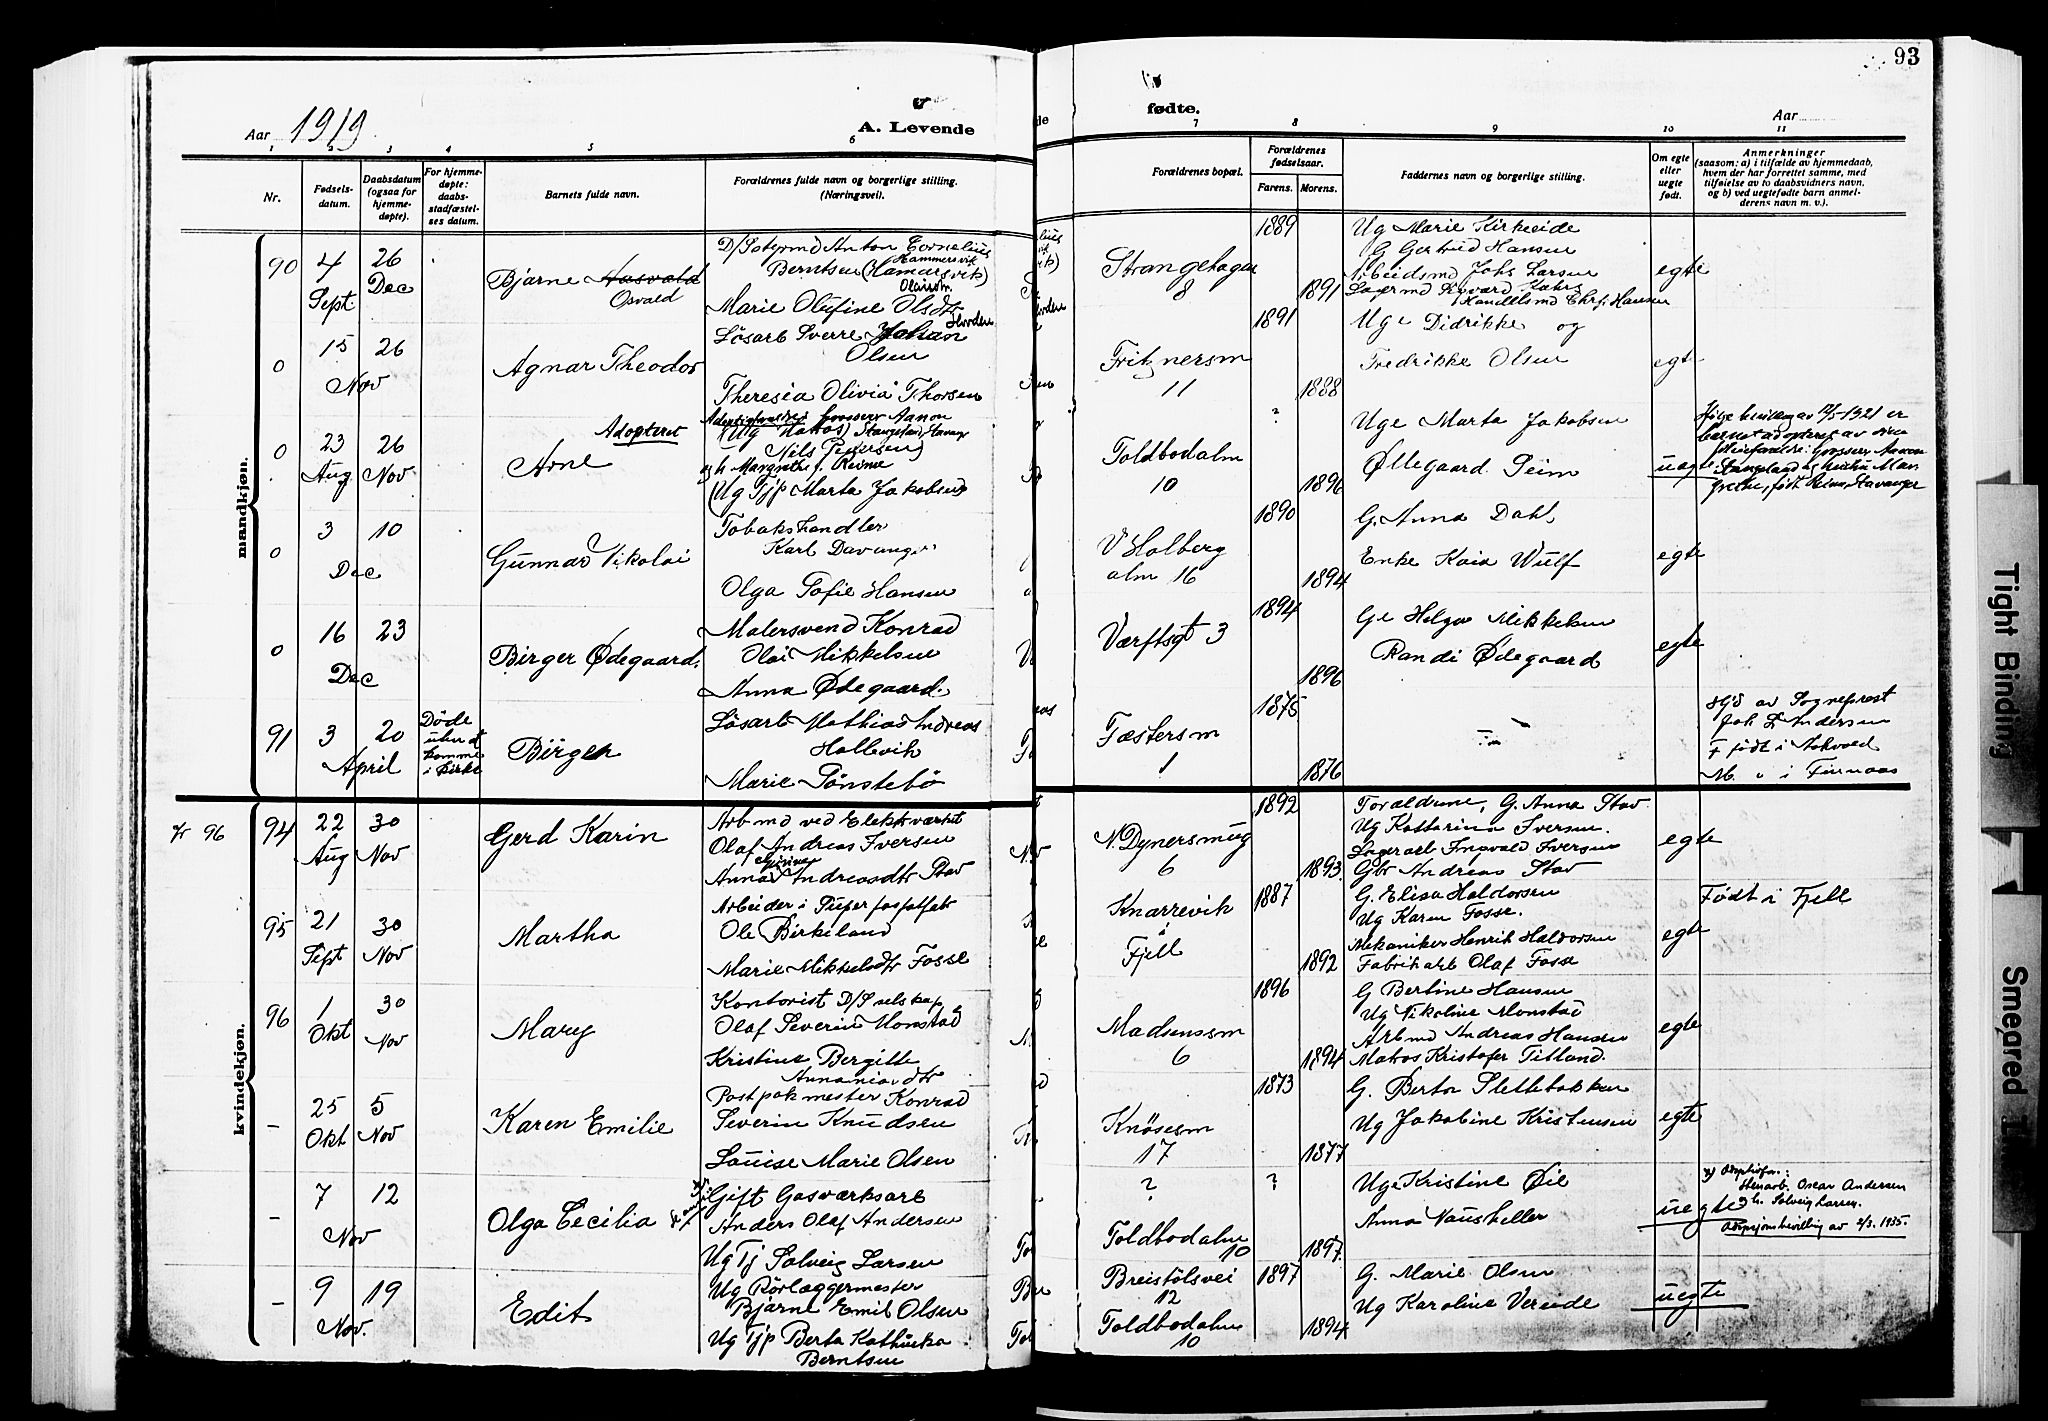 93
Aar 1919.
A. Levende
fødte.
Aar
1
2
3
4
5
6
7
8
9
10
11
Nr.
Fødsels-
datum.
Daabsdatum
(ogsaa for
hjemme-
døpte).
For hjemme-
døpte:
daabs-
stadfæstel-
ses datum.
Barnets fulde navn.
Forældrenes fulde navn og borgerlige stilling.
(Næringsvei).
Forældrenes bopæl.
Forældrenes
fødselsaar.
Farens.
Morens.
Faddernes navn og borgerlige stilling.
Om egte
eller
uegte
født.
Anmerkninger
(saasom: a) i tilfælde av hjemmedaab,
hvem der har forrettet samme, med
tilføielse av to daabsvidners navn,
og b) ved uegtefødte barn anmel-
derens navn m. v.).
mandkjøn.
90
4
Sept.
26
Dec
Bjarne Aasvald
Osvald
D/Sstyrmd Anton Cornelius
Hammersvik
Berntsen (Hamarsvik)
Marie Olufine Olsdtr
Hovden
Strangehagen
8
1889
1891
Ug Marie Kirkeeide
G Gertrud Hansen
Arbeidsmd Johs Larsen
Handelsmd Chrf. Hansen
egte
0
15
Nov
26
Agnar Theodor
Løsarb Sverre Johan
Olsen
Theresia Olivia Thorsen
Fritznersm
11
1891
1888
Uge Didrikke og
Fredrikke Olsen
egte
0
23
Aug
26
Nov
Adopteret
Arne
Grosserer Aanon
Stangeland, Stavanger
Nils Pedersen)
og h. Margrethe f. Reime
(Ug Tjp Marta Jakobsen)
Toldbodalm
10
?
1896
Uge Marta Jakobsen
Øllegaard Seim
uegte
Ifølge bevilling av 12/5-1921 er
barnet adopteret av sine
pleieforældre: Grosserer Aanon
Stangeland og hustru Mar-
grethe, født Reime, Stavanger
0
3
Dec
10
Gunnar Nikolai
Tobakshandler
Karl Davanger
Olga Sofie Hansen
V Holberg
alm 16
1890
1894
G. Anna Dahl,
Enke Kaia Wulf
egte
0
16
Dec
23
Birger Ødegaard.
Malersvend Konrad
Olai Mikkelsen
Anna Ødegaard.
Værftsgt 3
1894
1896
Ge Helga Mikkelsen
Randi Ødegaard
egte
91
3
April
20
Døde
uten at
komme
i Kirke
Birger
Løsarb Mathias Andreas
Hollevik
Marie Sønstebø
Fæstersm
1
1875
1876
Hjd av Sogneprest
Joh L Andersen
F født i Askvold
M. " i Finnaas
kvindekjøn.
Nr 96
94
22
Aug
30
Nov
Gerd Karin
Arb md ved Elektværket
Olaf Andreas Iversen
Anna Andreasdtr Stav
N. Dynersmug
6
1892
1893
Forældrene, G. Anna Stav
Ug Kattarina Iversen.
Lagerarb Ingvald Iversen
Gbr Andreas Stav
egte
95
21
Sept
30
Nov
Martha
Arbeider i Superfosfatfab
Ole Birkeland
Marie Mikkelsdtr Fosse
Knarrevik
i
Fjell
1887
1892
G. Elisa Haldorsen
Ug Karen Fosse.
Mekaniker Henrik Haldorsen
Fabrikarb Olaf Fosse
egte
Født i Fjell
96
1
Okt
30
Nov
Mary
Kontorist D/Sselskap
Olaf Severin Monstad
Kristine Bergitte
Annaniasdtr
Madsenssm
6
1896
1894
G Bertine Hansen
Ug Nikoline Monstad
Arb md Andreas Hansen
Matros Kristofer Titland.
egte
-
25
Okt
5
Nov
Karen Emilie
Postpakmester Konrad
Severin Knudsen
Louise Marie Olsen
Knøsesm
17
1873
1877
G. Berta Slettebakken
Ug Jakobine Kristensen
egte
-
7
Nov
12
Olga Cecilia
Gift Gasværksarb
Anders Olaf Andersen
Ug Tj Solveig Larsen
?
Toldbodalm
10
?
1897.
Uge Kristine Øie
Anna Naustheller
uegte
x) Adoptivfor.:
Stenarb. Oscar Andersen
og h. Solveig Larsen.
Adopsjonsbevilling av 2/3. 1935.
-
9
Nov.
19
Edit
Ug Rørlæggermester
Bjarne Emil Olsen
Ug Tjp Berta Kathinka
Berntsen
Breistølsvei
12
Toldbodalm
10
1897
1894
G. Marie Olsen
Ug Karoline Vereide
uegte
Tight Binding
Smeared